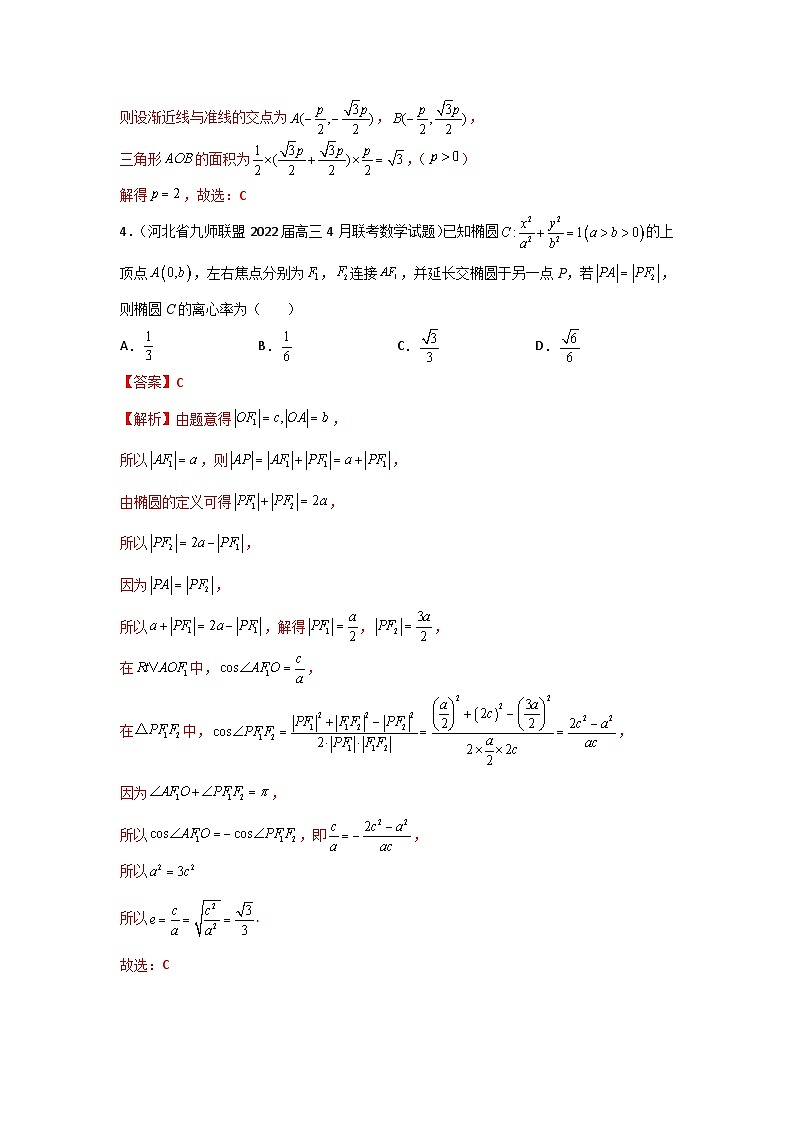 则设渐近线与准线的交点为 A(-p/2,-√3p/2)，B(-p/2,√3p/2)，
三角形 AOB 的面积为 1/2×(√3p/2+√3p/2)×p/2=√3,（p>0）
解得 p=2,故选：C
4．（河北省九师联盟 2022 届高三 4 月联考数学试题）已知椭圆 C:x²/a²+y²/b²=1(a>b>0)的上
顶点 A(0,b)，左右焦点分别为 F₁，F₂连接 AF₁，并延长交椭圆于另一点 P，若|PA|=|PF₂|，
则椭圆 C 的离心率为（　　）
A．1/3 B．1/6 C．√3/3 D．√6/6
【答案】C
【解析】由题意得|OF₁|=c,|OA|=b，
所以|AF₁|=a，则|AP|=|AF₁|+|PF₁|=a+|PF₁|，
由椭圆的定义可得|PF₁|+|PF₂|=2a，
所以|PF₂|=2a-|PF₁|，
因为|PA|=|PF₂|，
所以a+|PF₁|=2a-|PF₁|，解得|PF₁|=a/2，|PF₂|=3a/2，
在Rt∨AOF₁中，cos∠AF₁O=c/a，
在△PF₁F₂中，cos∠PF₁F₂=(|PF₁|²+|F₁F₂|²-|PF₂|²)/(2·|PF₁|·|F₁F₂|)=((a/2)²+(2c)²-(3a/2)²)/(2×a/2×2c)=(2c²-a²)/ac，
因为∠AF₁O+∠PF₁F₂=π，
所以cos∠AF₁O=-cos∠PF₁F₂，即c/a=-(2c²-a²)/ac，
所以a²=3c²
所以e=c/a=√(c²/a²)=√3/3．
故选：C